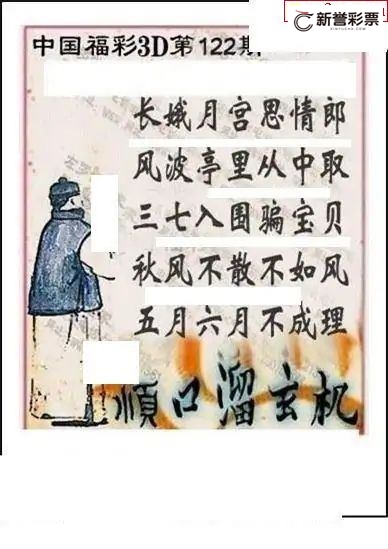 新誉彩票
中国福彩3D第122期
长娥月宫思情郎
风波亭里从中取
三七入围骗宝贝
秋风不散不如风
五月六月不成理
順口溜玄机